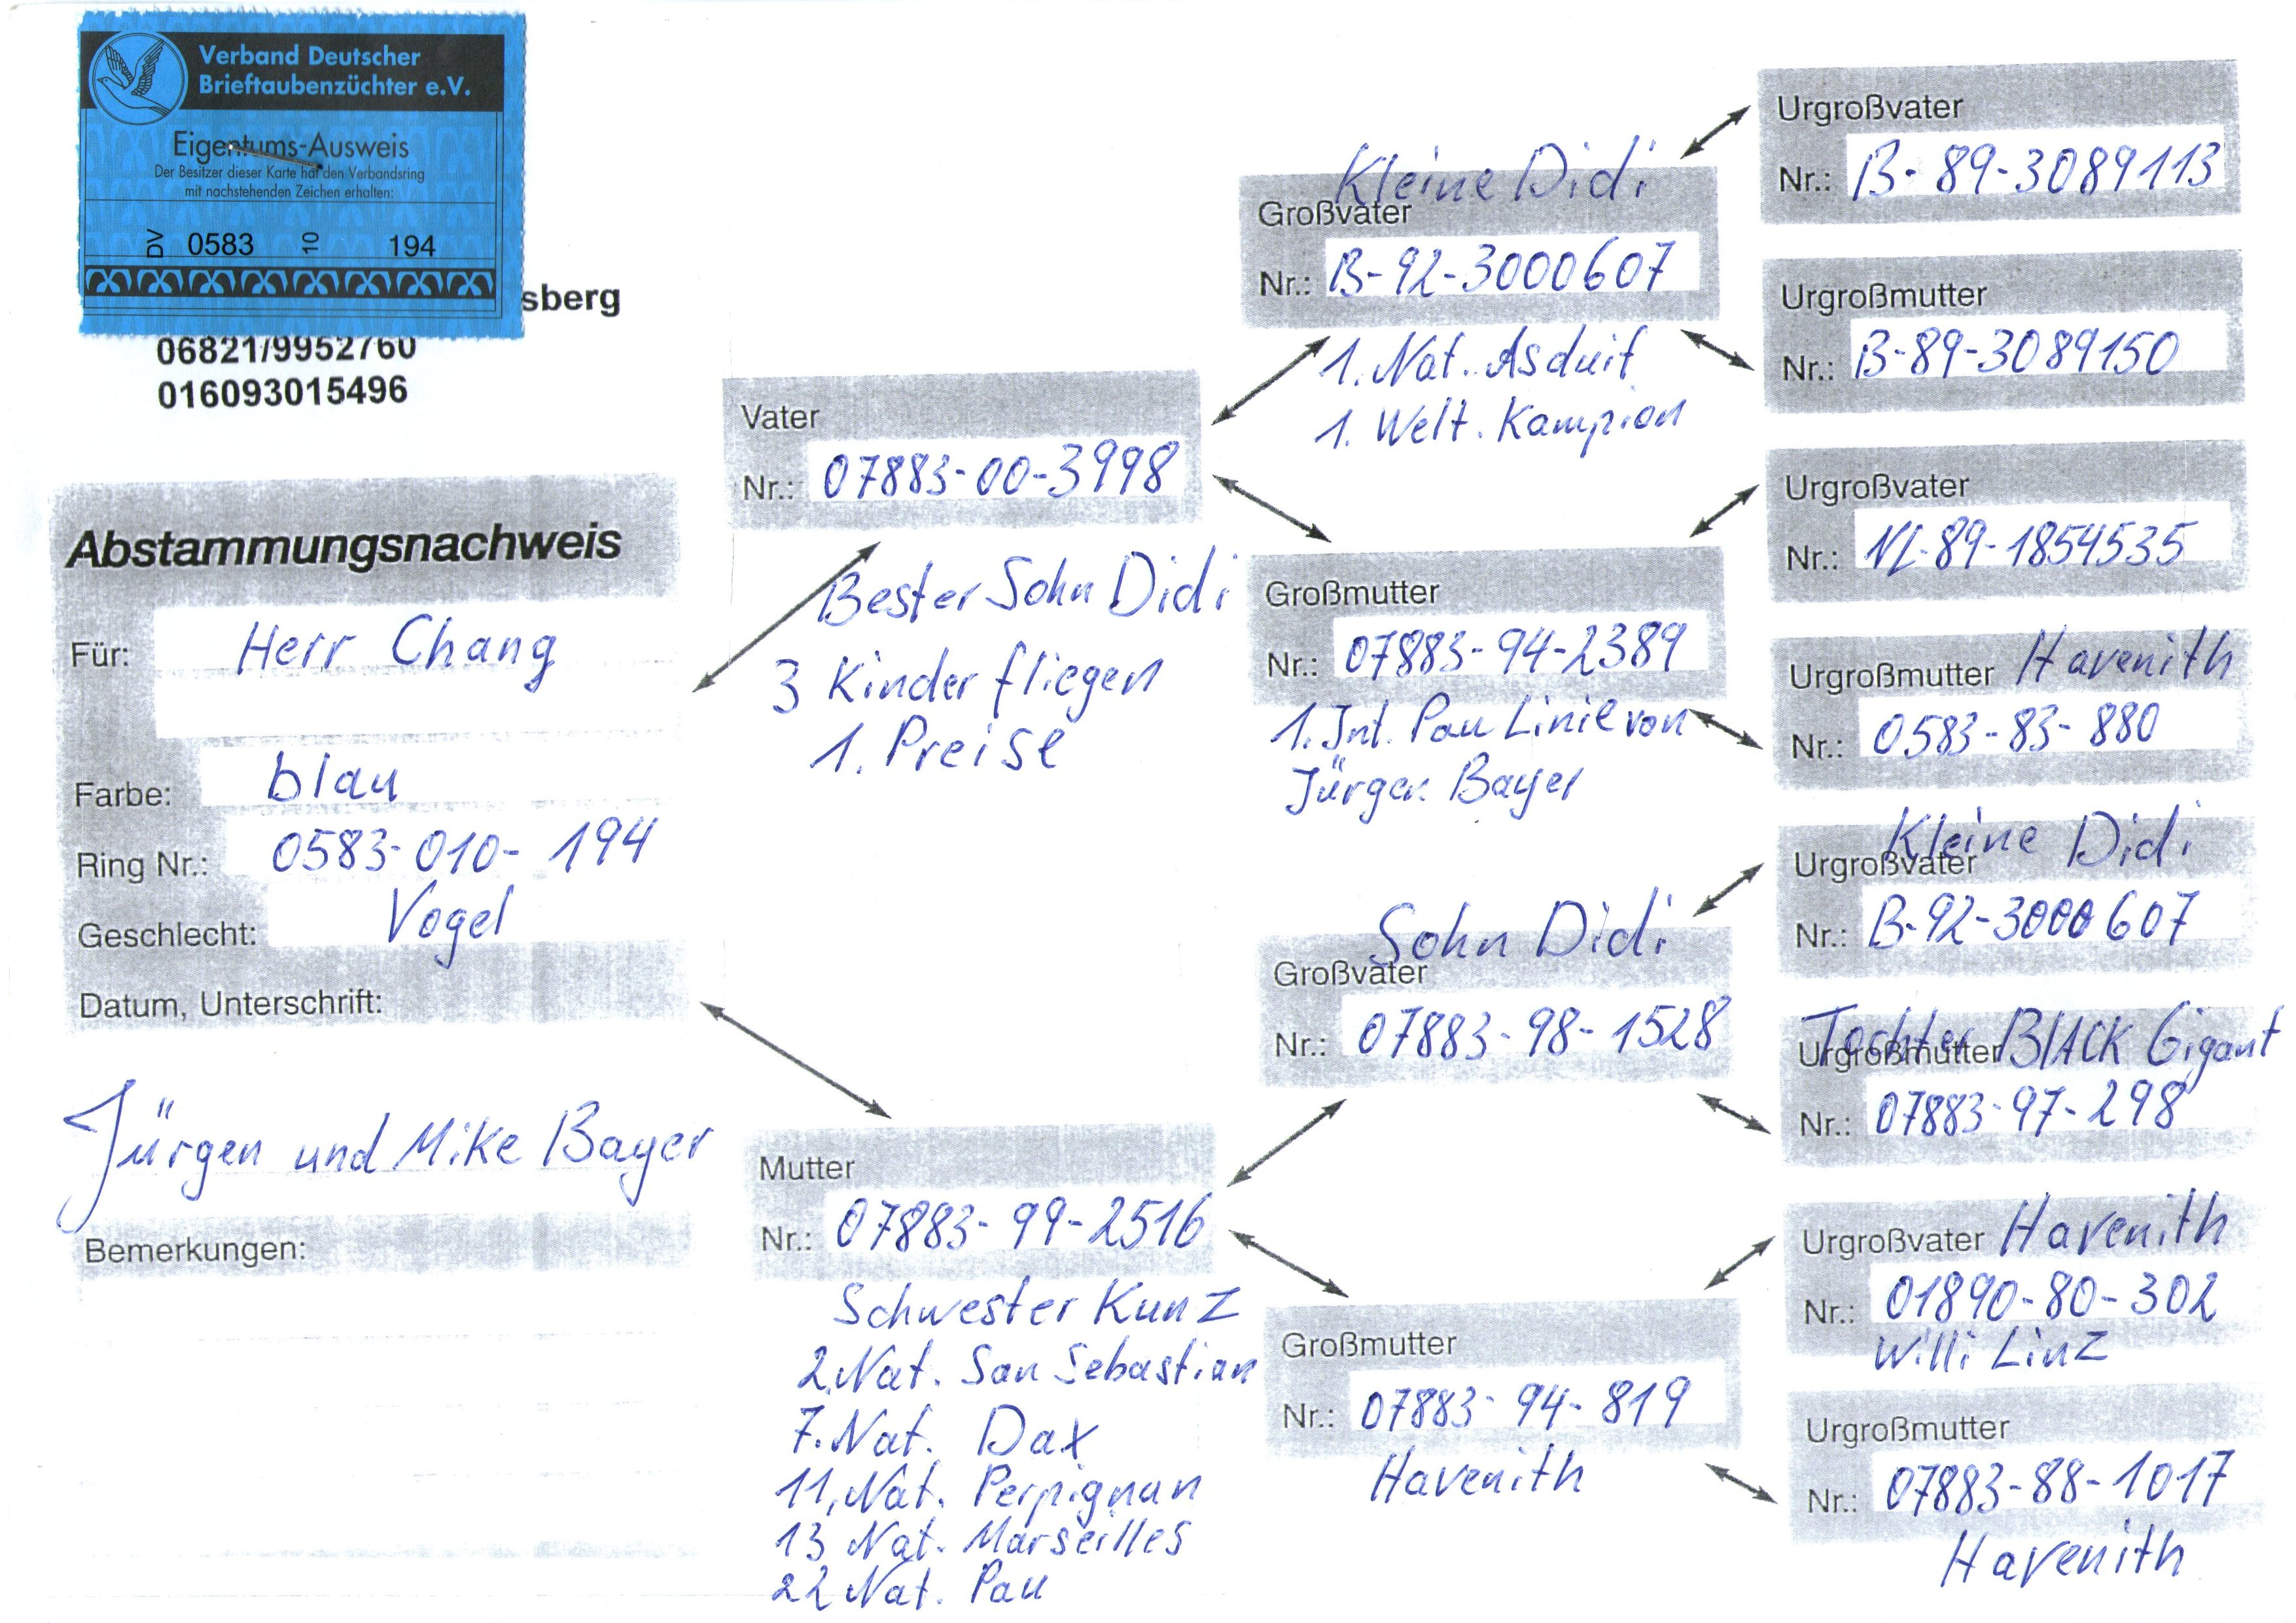 Verband Deutscher
Brieftaubenzüchter e.V.
Eigentums-Ausweis
Der Besitzer dieser Karte hat den Verbandsring
mit nachstehenden Zeichen erhalten:
DV 0583 10 194
sberg
06821/9952760
016093015496
Abstammungsnachweis
Für: Herr Chang
Farbe: blau
Ring Nr.: 0583-010-194
Geschlecht: Vogel
Datum, Unterschrift:
Jürgen und Mike Bayer
Bemerkungen:
Vater
Nr.: 07883-00-3998
Bester Sohn Didi
3 Kinder fliegen
1. Preise
Mutter
Nr.: 07883-99-2516
Schwester Kunz
2.Nat. San Sebastian
7.Nat. Dax
11.Nat. Perpignan
13 Nat. Marseilles
22 Nat. Pau
Kleine Didi
Großvater
Nr.: B-92-3000607
1. Nat. Asduif
1. Welt. Kampion
Großmutter
Nr.: 07883-94-2389
1. Int. Pau Linie von
Jürgen Bayer
Sohn Didi
Großvater
Nr.: 07883-98-1528
Großmutter
Nr.: 07883-94-819
Havenith
Urgroßvater
Nr.: B-89-3089113
Urgroßmutter
Nr.: B-89-3089150
Urgroßvater
Nr.: NL-89-1854535
Urgroßmutter Havenith
Nr.: 0583-83-880
Kleine Didi
Urgroßvater
Nr.: B-92-3000607
Tochter BlACK Gigant
Urgroßmutter
Nr.: 07883-97-298
Urgroßvater Havenith
Nr.: 01890-80-302
Willi Linz
Urgroßmutter
Nr.: 07883-88-1017
Havenith